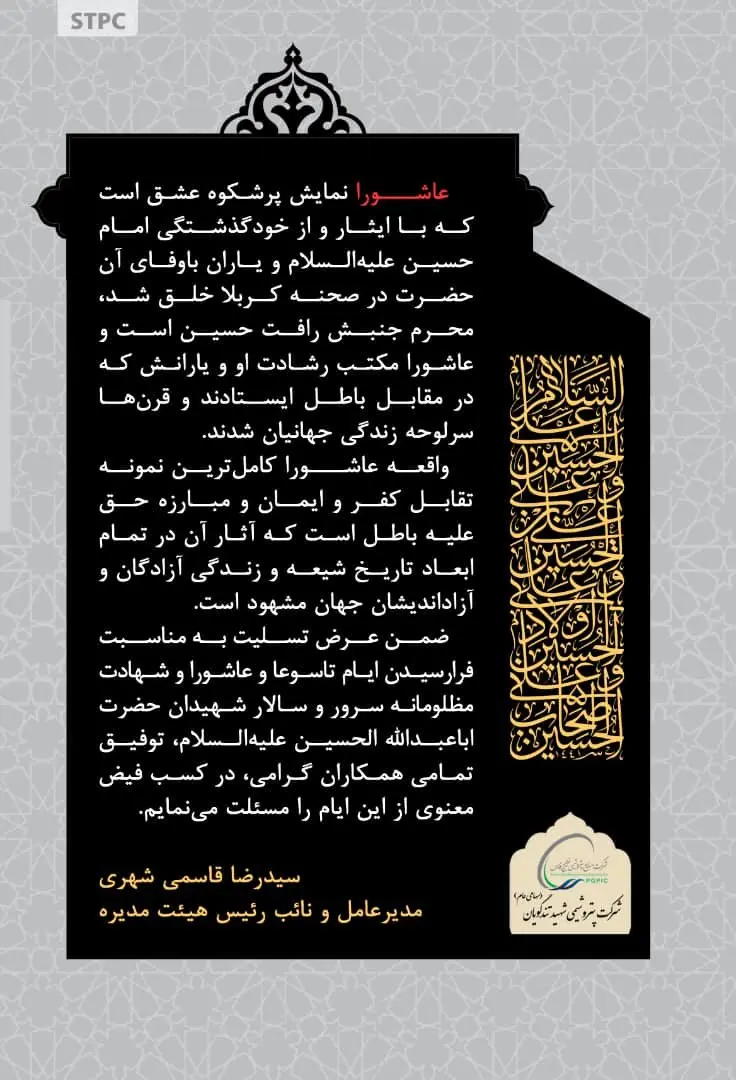 STPC
عاشورا نمایش پرشکوه عشق است
که با ایثار و از خودگذشتگی امام
حسین علیه‌السلام و یاران باوفای آن
حضرت در صحنه کربلا خلق شد،
محرم جنبش رافت حسین است و
عاشورا مکتب رشادت او و یارانش که
در مقابل باطل ایستادند و قرن‌ها
سرلوحه زندگی جهانیان شدند.
واقعه عاشورا کامل‌ترین نمونه
تقابل کفر و ایمان و مبارزه حق
علیه باطل است که آثار آن در تمام
ابعاد تاریخ شیعه و زندگی آزادگان و
آزاداندیشان جهان مشهود است.
ضمن عرض تسلیت به مناسبت
فرارسیدن ایام تاسوعا و عاشورا و شهادت
مظلومانه سرور و سالار شهیدان حضرت
اباعبدالله الحسین علیه‌السلام، توفیق
تمامی همکاران گرامی، در کسب فیض
معنوی از این ایام را مسئلت می‌نمایم.
سیدرضا قاسمی شهری
مدیرعامل و نائب رئیس هیئت مدیره
السَّلامُ
عَلَى
الحُسَین
وَ عَلَى
عَلیِّ بنِ
الحُسَین
وَ عَلَى
اَولادِ
الحُسَین
وَ عَلَى
اَصحابِ
الحُسَین
شرکت صنایع پتروشیمی خلیج فارس
PGPIC
(سهامی عام)
شرکت پتروشیمی شهید تندگویان